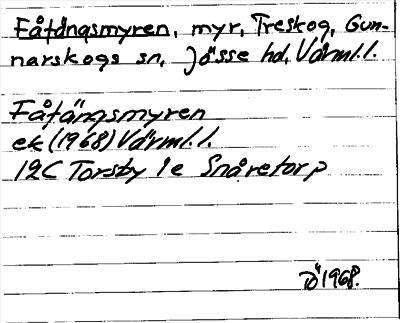 Fåtångsmyren, myr, Treskog, Gun-
narskogs sn, Jösse hd, Värml.l.
Fåtångsmyren
ek (1968) Värml.l.
12C Torsby 1e Snåretorp
1968.